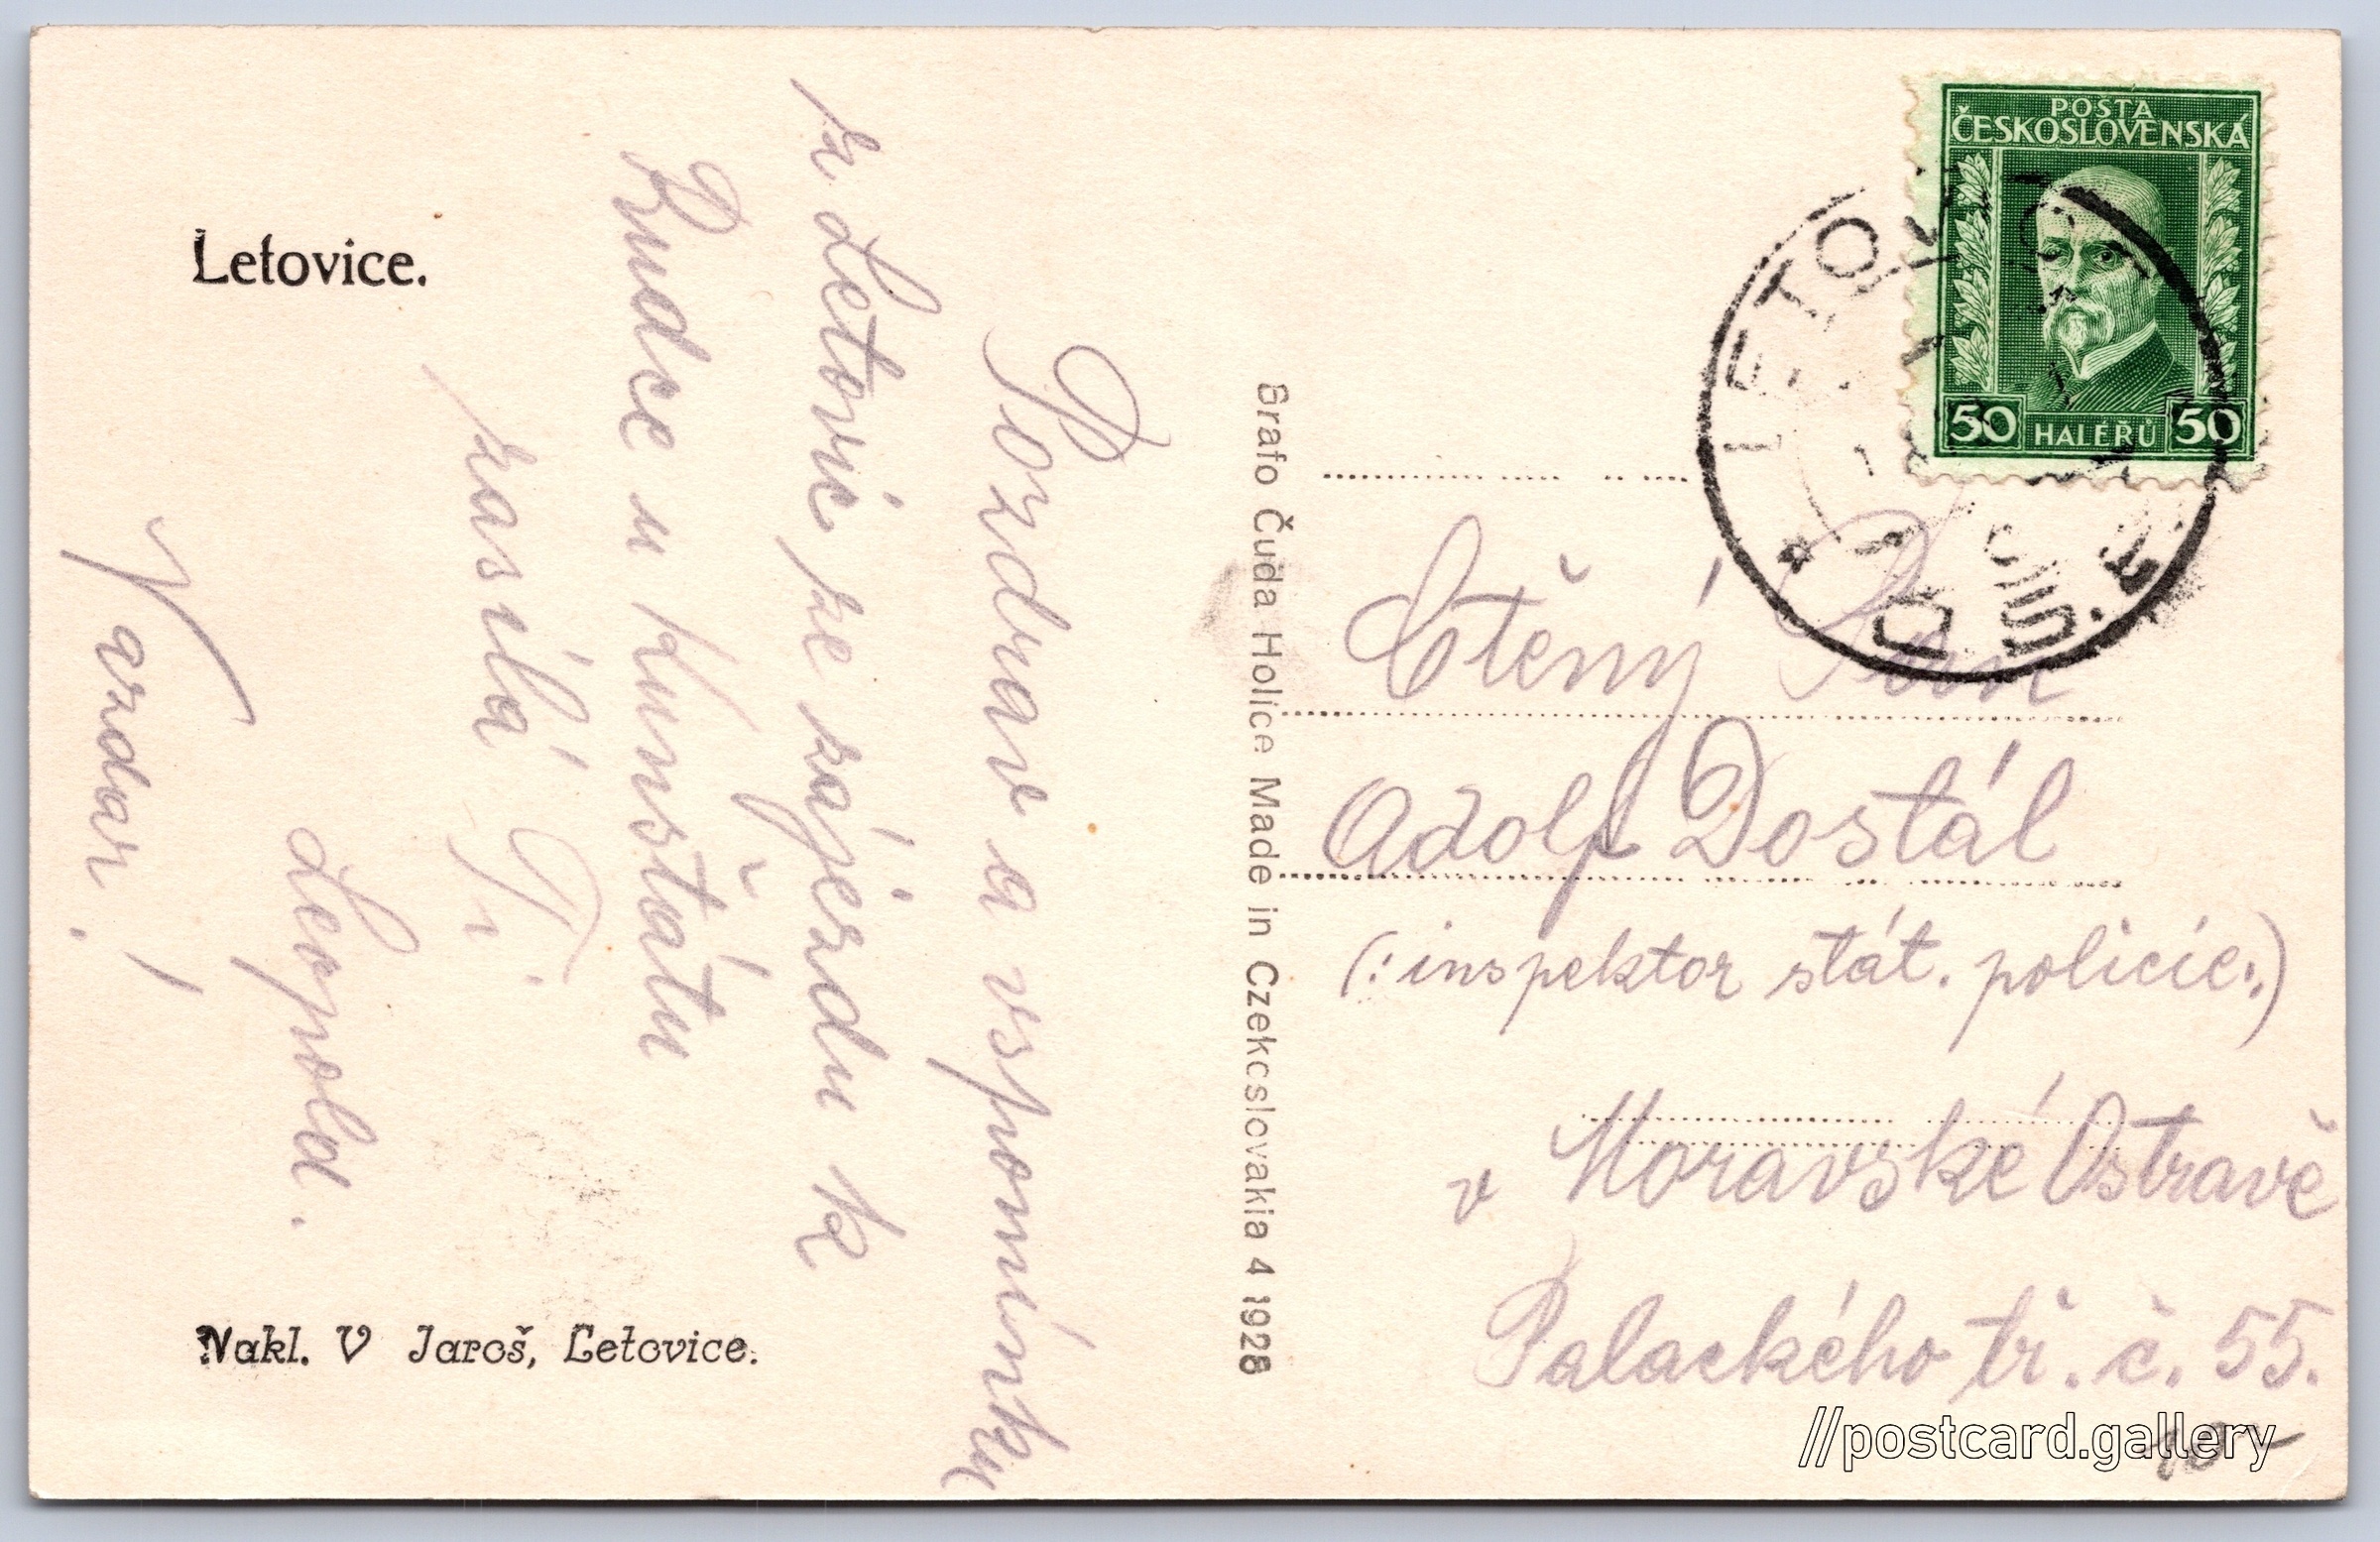 Letovice.
Pozdrav a vspomínku
z Letovic ze zájezdu k
Rudce u Kunštátu
zasílá Ti
Leopold.
Nazdar!
Nakl. V Jaroš, Letovice.
Grafo Čuda Holice Made in Czekcslovakia 4 1928
POŠTA
ČESKOSLOVENSKÁ
50 HALÉŘŮ 50
LETOV
Ctěný Pan
Adolf Dostál
(: inspektor stát. policie :)
v Moravské Ostravě
Palackého tř. č. 55.
10-
//postcard.gallery